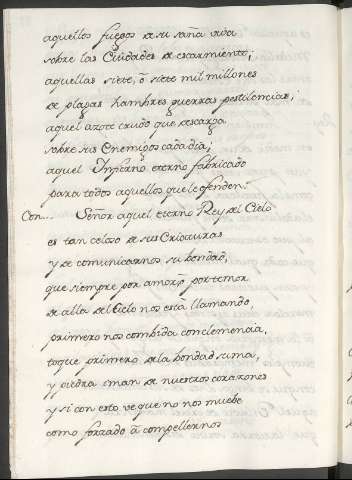 aquellos fuegos de su saña viva
sobre las Ciudades de escarmiento;
aquellas siete, ó siete mil millones
de plagas hambres guerras pestilencias;
aquel azote crudo que descarga
sobre sus Enemigos cada dia;
aquel Infierno eterno fabricado
para todos aquellos que le ofenden.
Con... Señor aquel eterno Rey del Cielo
es tan celoso de sus Criaturas
y de comunicarnos su bondad,
que siempre por amor, ò por temor
de alla del Cielo nos esta llamando,
primero nos combida con clemencia,
toque primero de la bondad suma,
y piedra iman de nuestros corazones
y si con esto ve que no nos muebe
como forzado à compellernos